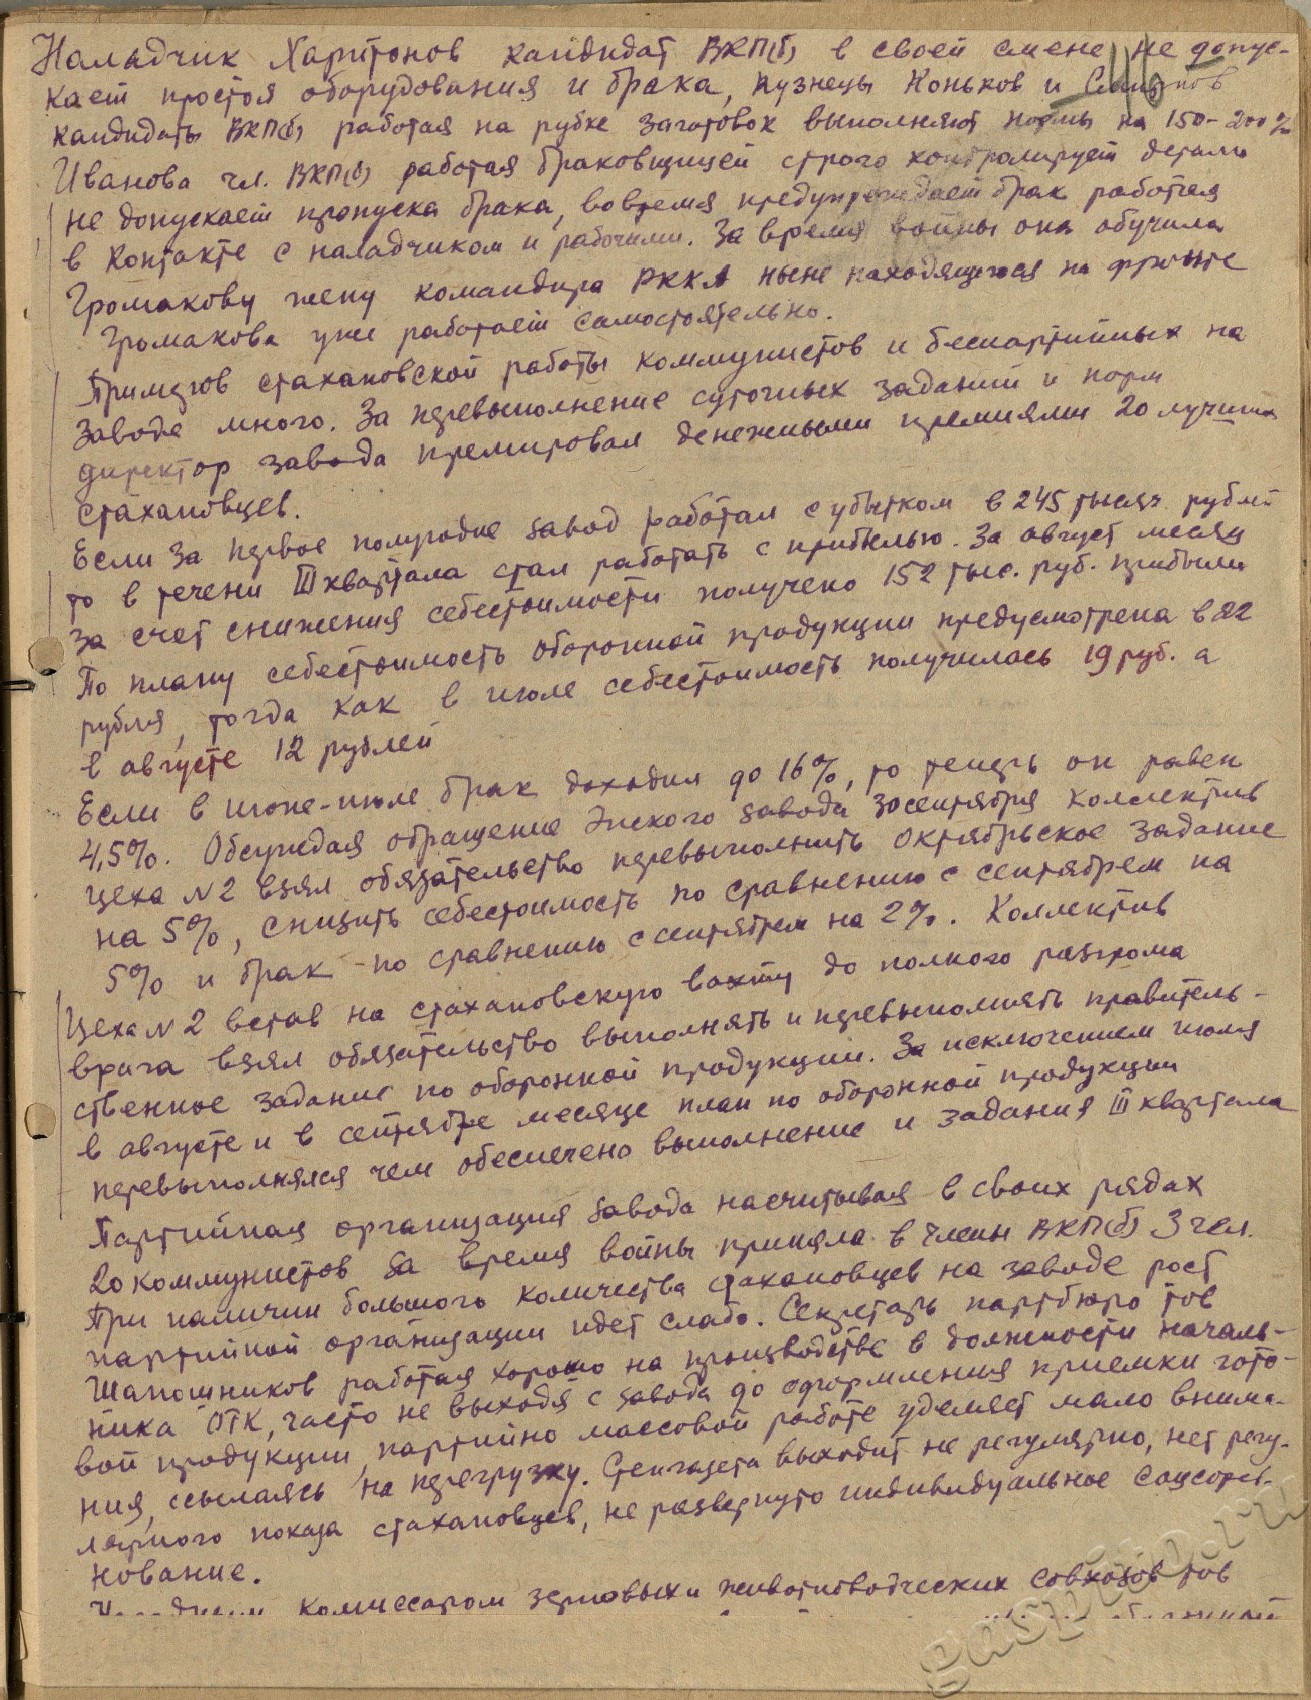 116
Наладчик Харитонов кандидат ВКП(б) в своей смене не допус-
кает простоя оборудования и брака, кузнецы Коньков и
кандидаты ВКП(б) работая на рубке заготовок выполняют нормы на 150-200%
Иванова чл. ВКП(б) работая браковщицей строго контролирует детали
не допускает пропуска брака, вовремя предупреждает брак работая
в контакте с наладчиком и рабочими. За время войны она обучила
Громакову жену командира РККА ныне находящегося на фронте
Громакова уже работает самостоятельно.
Примеров стахановской работы коммунистов и беспартийных на
заводе много. За перевыполнение суточных заданий и норм
директор завода премировал денежными премиями 20 лучших
стахановцев.
Если за первое полугодие завод работал с убытком в 245 тысяч рублей
то в течени III квартала стал работать с прибылью. За август месяц
за счет снижения себестоимости получено 152 тыс. руб. прибыли
По плану себестоимость оборонной продукции предусмотрена в 22
рубля, тогда как в июле себестоимость получилась 19 руб. а
в августе 12 рублей
Если в июне-июле брак доходил до 16%, то теперь он равен
4,5%. Обсуждая обращение Энского завода 30 сентября коллектив
цеха N2 взял обязательство перевыполнить октябрьское задание
на 5%, снизить себестоимость по сравнению с сентябрем на
5% и брак - по сравнению с сентябрем на 2%. Коллектив
Цеха N2 встав на стахановскую вахту до полного разгрома
врага взял обязательство выполнять и перевыполнять правитель-
ственное задание по оборонной продукции. За исключением июля
в августе и в сентябре месяце план по оборонной продукции
перевыполнялся чем обеспечено выполнение и задания III квартала
Партийная организация завода насчитывая в своих рядах
20 коммунистов за время войны приняла в члены ВКП(б) 3 чел.
При наличии большого количества стахановцев на заводе рост
партийной организации идет слабо. Секретарь партбюро тов
Шапошников работая хорошо на производстве в должности началь-
ника ОТК, часто не выходя с завода до оформления приемки гото-
вой продукции, партийно массовой работе уделяет мало внима-
ния, ссылаясь на перегрузку. Стенгазета выходит не регулярно, нет регу-
лярного показа стахановцев, не развернуто индивидуальное соцсорев-
нование.
комиссаром зерновых и животноводческих совхозов тов
gaspiko.ru